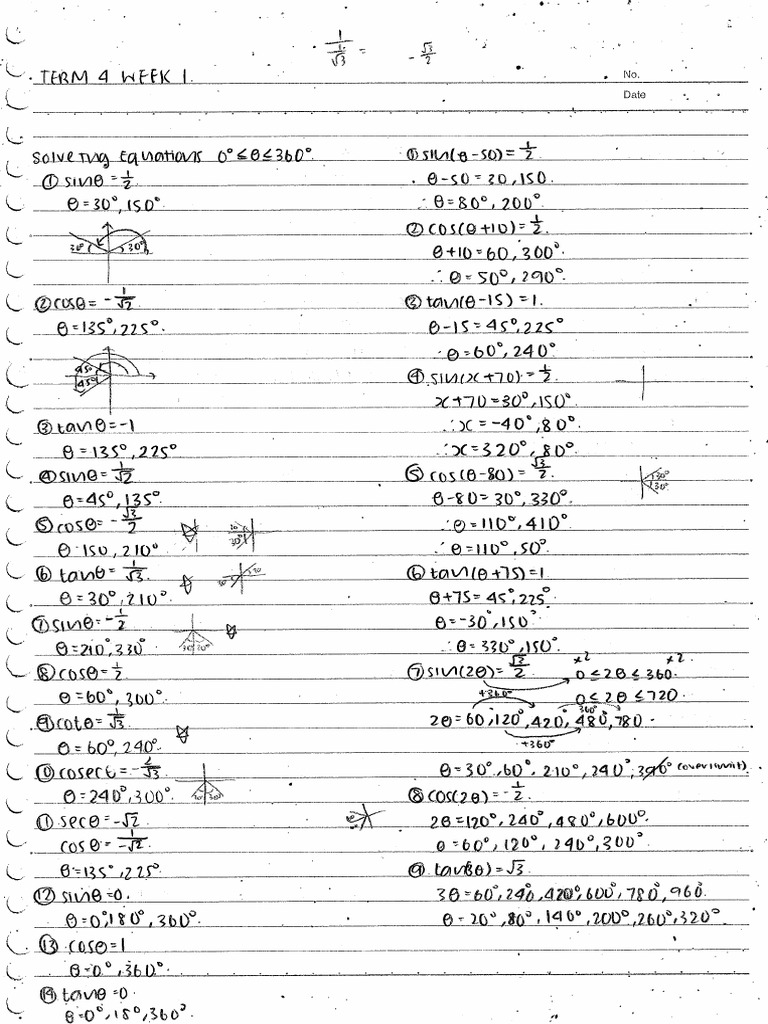 1
1/√3 =
-√3/2
TERM 4 WEEK 1.
No.
Date
Solveing Equations 0° ≤ θ ≤ 360°.
① sinθ = 1/2
θ = 30°, 150°
30°
30°
② cosθ = -1/√2
θ = 135°, 225°
45°
45°
③ tanθ = -1
θ = 135°, 225°
④ sinθ = 1/√2
θ = 45°, 135°.
⑤ cosθ = -√3/2
θ 150, 210°
30°
⑥ tanθ = 1/√3.
θ = 30°, 210°.
⑦ sinθ = -1/2
θ = 210°, 330°
⑧ cosθ = 1/2
θ = 60°, 300°.
⑨ cotθ = 1/√3
θ = 60°, 240°
⑩ cosect = -2/√3
θ = 240°, 300°.
① secθ = -√2
cosθ = 1/-√2
θ = 135°, 225°
⑫ sinθ = 0.
θ = 0°, 180°, 360°.
⑬ cosθ = 1
θ = 0°, 360°.
⑭ tanθ = 0.
θ = 0°, 18°, 360°.
① sin(θ - 50) = 1/2
θ - 50 = 30, 150.
∴ θ = 80°, 200°.
② cos(θ + 10) = 1/2.
θ + 10 = 60, 300°.
∴ θ = 50°, 290°.
③ tan(θ - 15) = 1.
θ - 15 = 45°, 225°
∴ θ = 60°, 240°
④ sin(x + 70) = 1/2
x + 70 = 30°, 150°.
∴ x = -40°, 80°.
∴ x = 320°, 80°.
⑤ cos(θ - 80) = √3/2
30°
30°
θ - 80 = 30°, 330°.
∴ θ = 110°, 410°
∴ θ = 110°, 50°
⑥ tan(θ + 75) = 1
θ + 75 = 45°, 225°
θ = -30°, 150°
∴ θ = 330°, 150°.
⑦ sin(2θ) = √3/2
×2 ×2.
0 ≤ 2θ ≤ 360.
+360°
0 ≤ 2θ ≤ 720.
360°
2θ = 60, 120°, 420°, 480°, 780.
+360°
θ = 30°, 60°, 210°, 240°, 390° (over limit).
⑧ cos(2θ) = -1/2.
2θ = 120°, 240°, 480°, 600°.
θ = 60°, 120°, 240°, 300°
⑨ tan(3θ) = √3
3θ = 60°, 240°, 420°, 600°, 780°, 960°.
θ = 20°, 80°, 140°, 200°, 260°, 320°